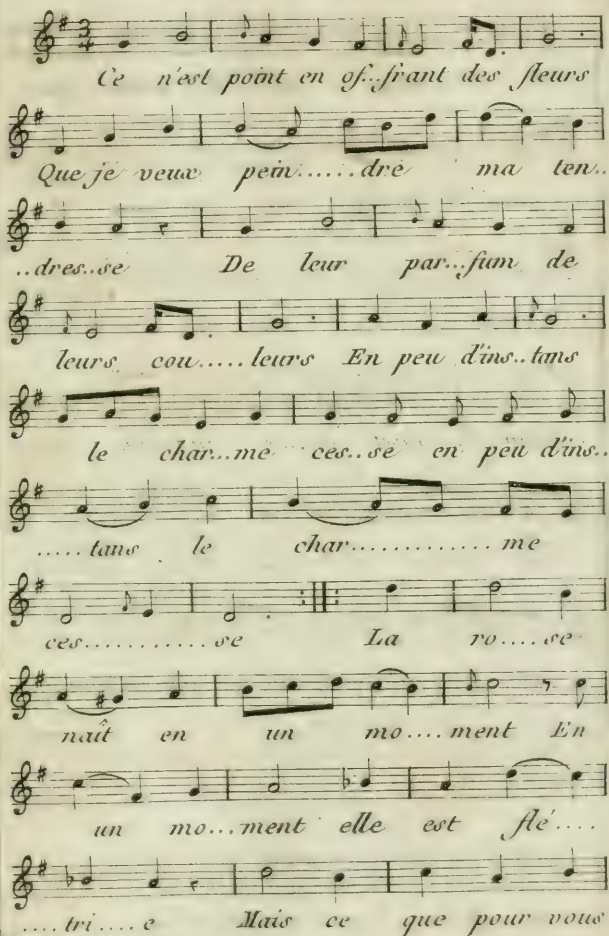 Ce n'est point en of...frant des fleurs
Que je veux pein......dre ma ten..
..dres..se De leur par...fum de
leurs cou.....leurs En peu d'ins..tans
le char...me ces..se en peu d'ins..
.....tans le char............me
ces...........se La ro....se
naît en un mo....ment En
un mo...ment elle est flé....
....tri....e Mais ce que pour vous